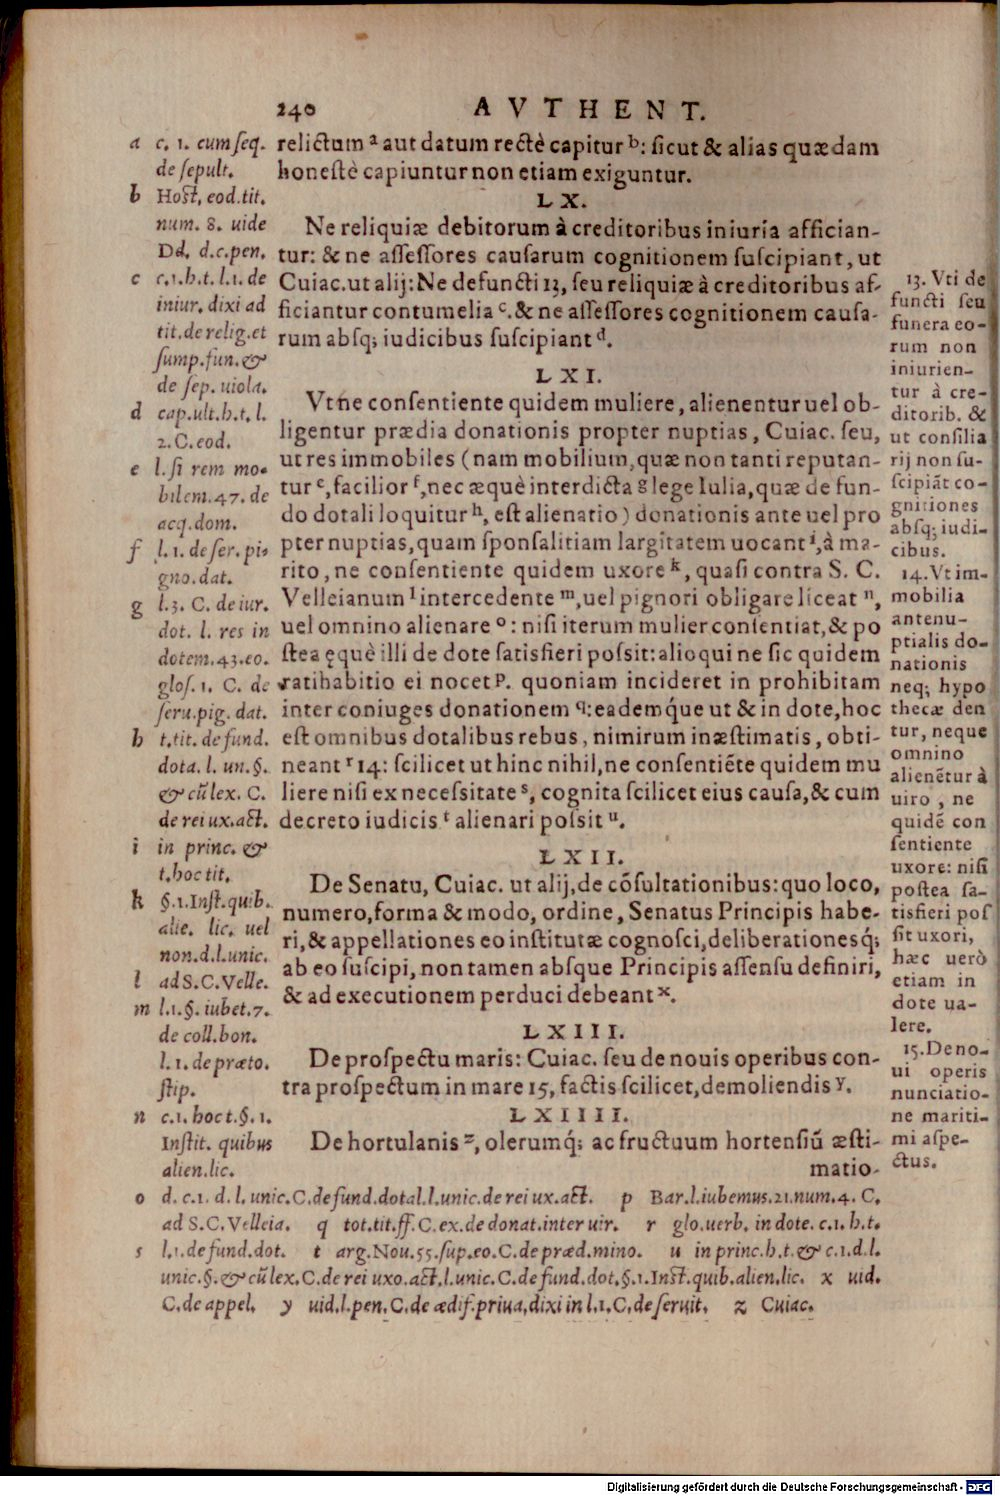 240 AVTHENT.
relictum a aut datum rectè capitur b: sicut & alias quædam
honestè capiuntur non etiam exiguntur.
LX.
Ne reliquiæ debitorum à creditoribus iniuria affician-
tur: & ne assessores causarum cognitionem suscipiant, ut
Cuiac. ut alij: Ne defuncti 13, seu reliquiæ à creditoribus af-
ficiantur contumelia c. & ne assessores cognitionem causa-
rum absq; iudicibus suscipiant d.
LXI.
Vt ne consentiente quidem muliere, alienentur uel ob-
ligentur prædia donationis propter nuptias, Cuiac. seu,
ut res immobiles (nam mobilium, quæ non tanti reputan-
tur e, facilior f, nec æquè interdicta g lege Iulia, quæ de fun-
do dotali loquitur h, est alienatio) donationis ante uel pro
pter nuptias, quam sponsalitiam largitatem uocant i, à ma-
rito, ne consentiente quidem uxore k, quasi contra S. C.
Velleianum l intercedente m, uel pignori obligare liceat n,
uel omnino alienare o: nisi iterum mulier consentiat, & po
stea ęquè illi de dote satisfieri possit: alioqui ne sic quidem
ratihabitio ei nocet p. quoniam incideret in prohibitam
inter coniuges donationem q: eademq́ue ut & in dote, hoc
est omnibus dotalibus rebus, nimirum inæstimatis, obti-
neant r 14: scilicet ut hinc nihil, ne consentiẽte quidem mu
liere nisi ex necessitate s, cognita scilicet eius causa, & cum
decreto iudicis t alienari possit u.
LXII.
De Senatu, Cuiac. ut alij, de cõsultationibus: quo loco,
numero, forma & modo, ordine, Senatus Principis habe-
ri, & appellationes eo institutæ cognosci, deliberationesq́;
ab eo suscipi, non tamen absque Principis assensu definiri,
& ad executionem perduci debeant x.
LXIII.
De prospectu maris: Cuiac. seu de nouis operibus con-
tra prospectum in mare 15, factis scilicet, demoliendis y.
LXIIII.
De hortulanis z, olerumq́; ac fructuum hortensiũ æsti-
matio-
a c. 1. cum seq.
de sepult.
b Host. eod. tit.
num. 8. uide
Dd. d.c.pen.
c c.1.h.t.l.1. de
iniur. dixi ad
tit. de relig. et
sump. fun. &
de sep. uiola.
d cap. ult. h.t. l.
2. C. eod.
e l. si rem mo-
bilem. 47. de
acq. dom.
f l. 1. de ser. pi-
gno. dat.
g l.3. C. de iur.
dot. l. res in
dotem. 43. eo.
glos. 1. C. de
seru. pig. dat.
h t. tit. de fund.
dota. l. un. §.
& cũ lex. C.
de rei ux. act.
i in princ. &
t. hoc tit.
k §.1. Inst. quib.
alie. lic. uel
non. d. l. unic.
l ad S.C. Velle.
m l.1. §. iubet. 7.
de coll. bon.
l. 1. de præto.
stip.
n c.1. hoc t. §. 1.
Instit. quibus
alien. lic.
13. Vti de
functi seu
funera eo-
rum non
iniurien-
tur à cre-
ditorib. &
ut consilia
rij non su-
scipiãt co-
gnitiones
absq; iudi-
cibus.
14. Vt im-
mobilia
antenu-
ptialis do-
nationis
neq; hypo
thecæ den
tur, neque
omnino
alienẽtur à
uiro, ne
quidẽ con
sentiente
uxore: nisi
postea sa-
tisfieri pos
sit uxori,
hæc uerò
etiam in
dote ua-
lere.
15. De no-
ui operis
nunciatio-
ne mariti-
mi aspe-
ctus.
o d. c.1. d. l. unic. C. de fund. dotal. l. unic. de rei ux. act. p Bar. l. iubemus. 21. num. 4. C.
ad S.C. Velleia. q tot. tit. ff. C. ex. de donat. inter uir. r glo. uerb. in dote. c.1. h.t.
s l.1. de fund. dot. t arg. Nou. 55. sup. eo. C. de præd. mino. u in princ. h.t. & c.1. d. l.
unic. §. & cũ lex. C. de rei uxo. act. l. unic. C. de fund. dot, §.1. Inst. quib. alien. lic. x uid.
C. de appel. y uid. l. pen. C. de ædif. priua, dixi in l.1. C. de seruit. z Cuiac.
Digitalisierung gefördert durch die Deutsche Forschungsgemeinschaft - DFG